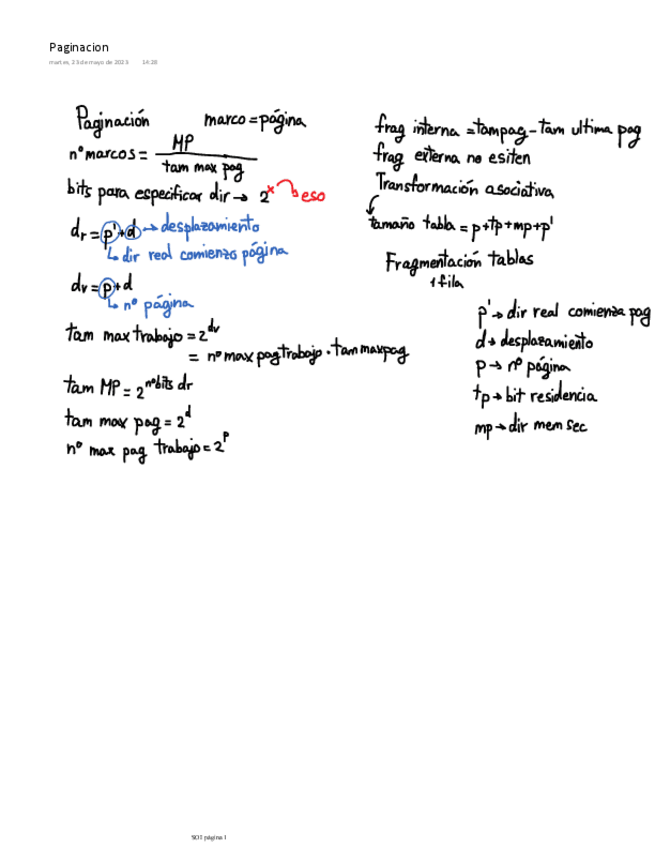 Paginacion
martes, 23 de mayo de 2023 14:28
Paginación marco = página
nº marcos = MP / tam max pag
bits para especificar dir → 2^x eso
dr = p' + d → desplazamiento
↳ dir real comienzo página
dv = p + d
↳ nº página
tam max trabajo = 2^dv
= nº max pag trabajo · tam max pag
tam MP = 2^nº bits dr
tam max pag = 2^d
nº max pag trabajo = 2^p
frag interna = tampag - tam ultima pag
frag externa no esiten
Transformación asociativa
tamaño tabla = p + tp + mp + p'
Fragmentación tablas
1 fila
p' → dir real comienza pag
d → desplazamiento
p → nº página
tp → bit residencia
mp → dir mem sec
SO1 página 1